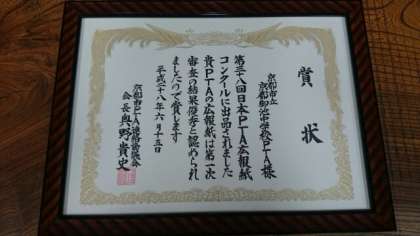 賞状
京都市立
京都御池中学校PTA様
第三十八回日本PTA広報紙
コンクールに出品されました
貴PTAの広報紙は第一次
審査の結果優秀と認められ
ましたので賞します
平成二十八年六月十五日
京都市PTA連絡協議会
会長 奥野貴史